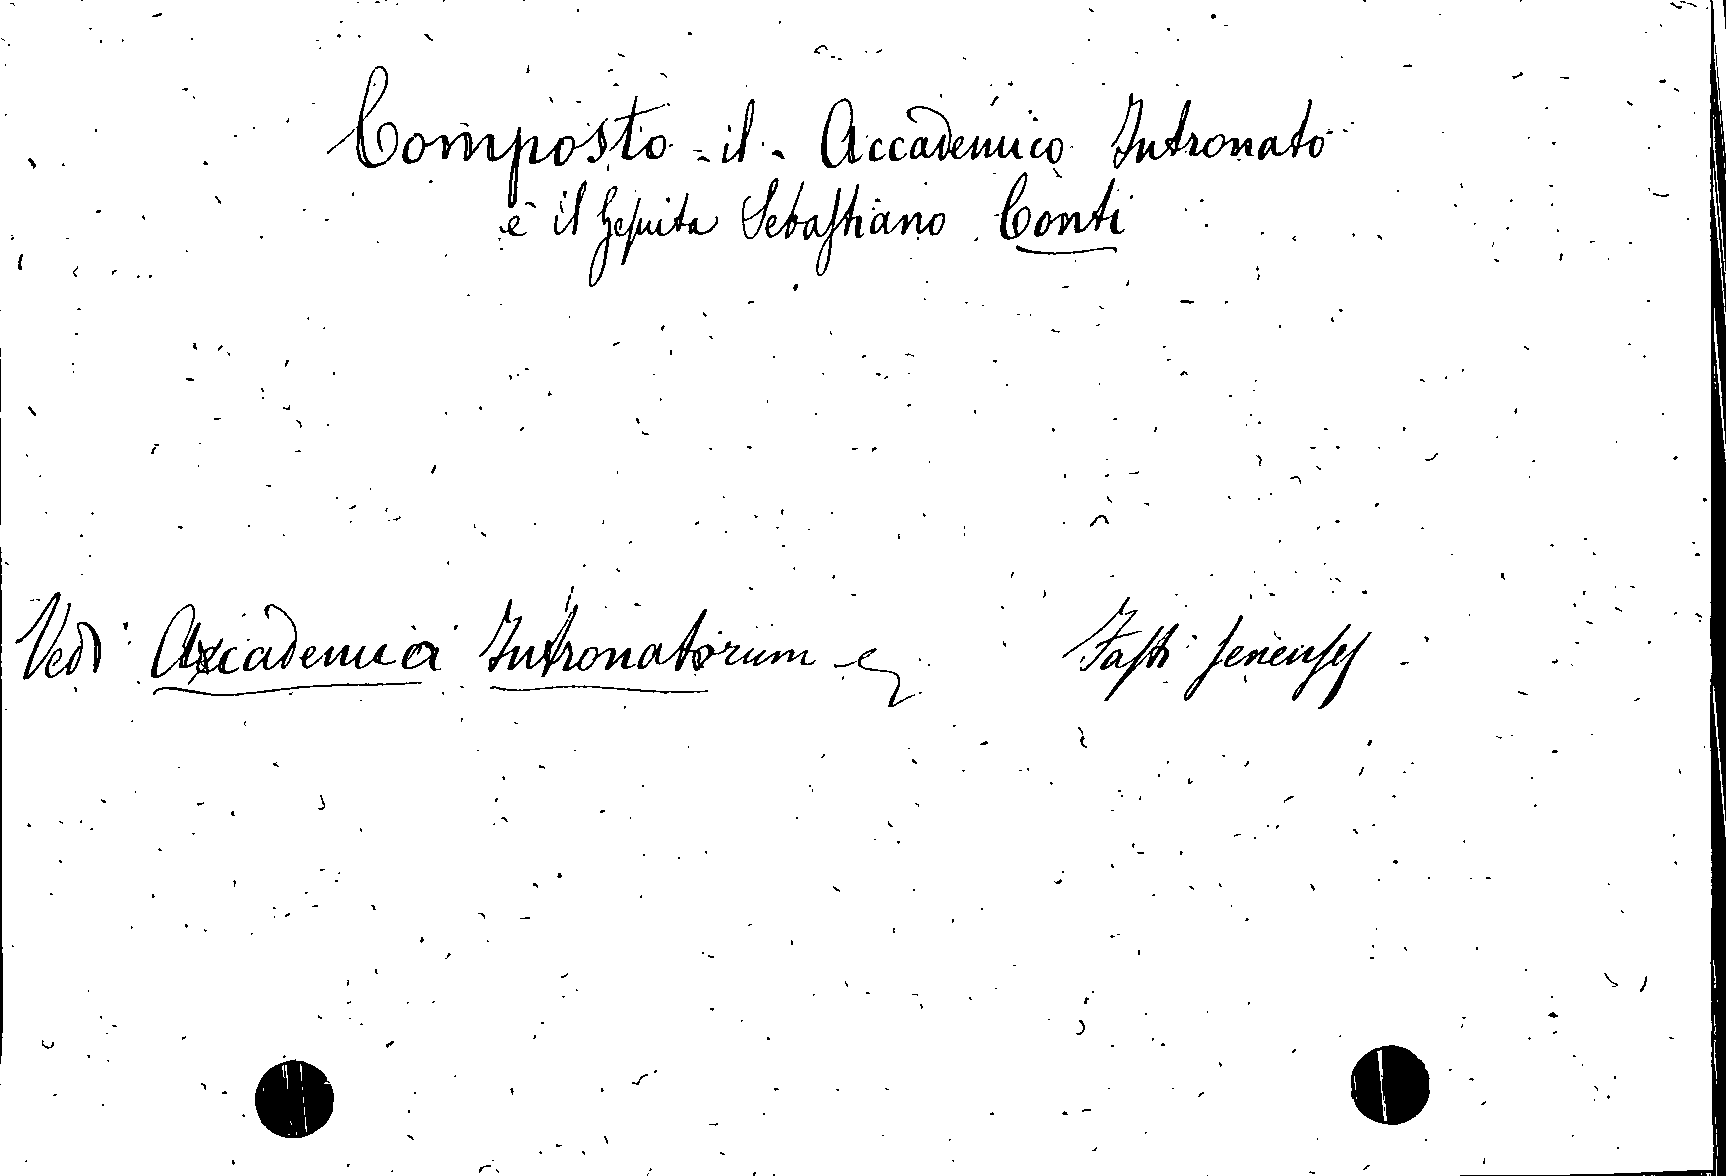 Composto - il - Accademico Intronato
è il Gesuita Sebastiano Conti
Vedi Accademia Intronatorum e Fasti Senenses